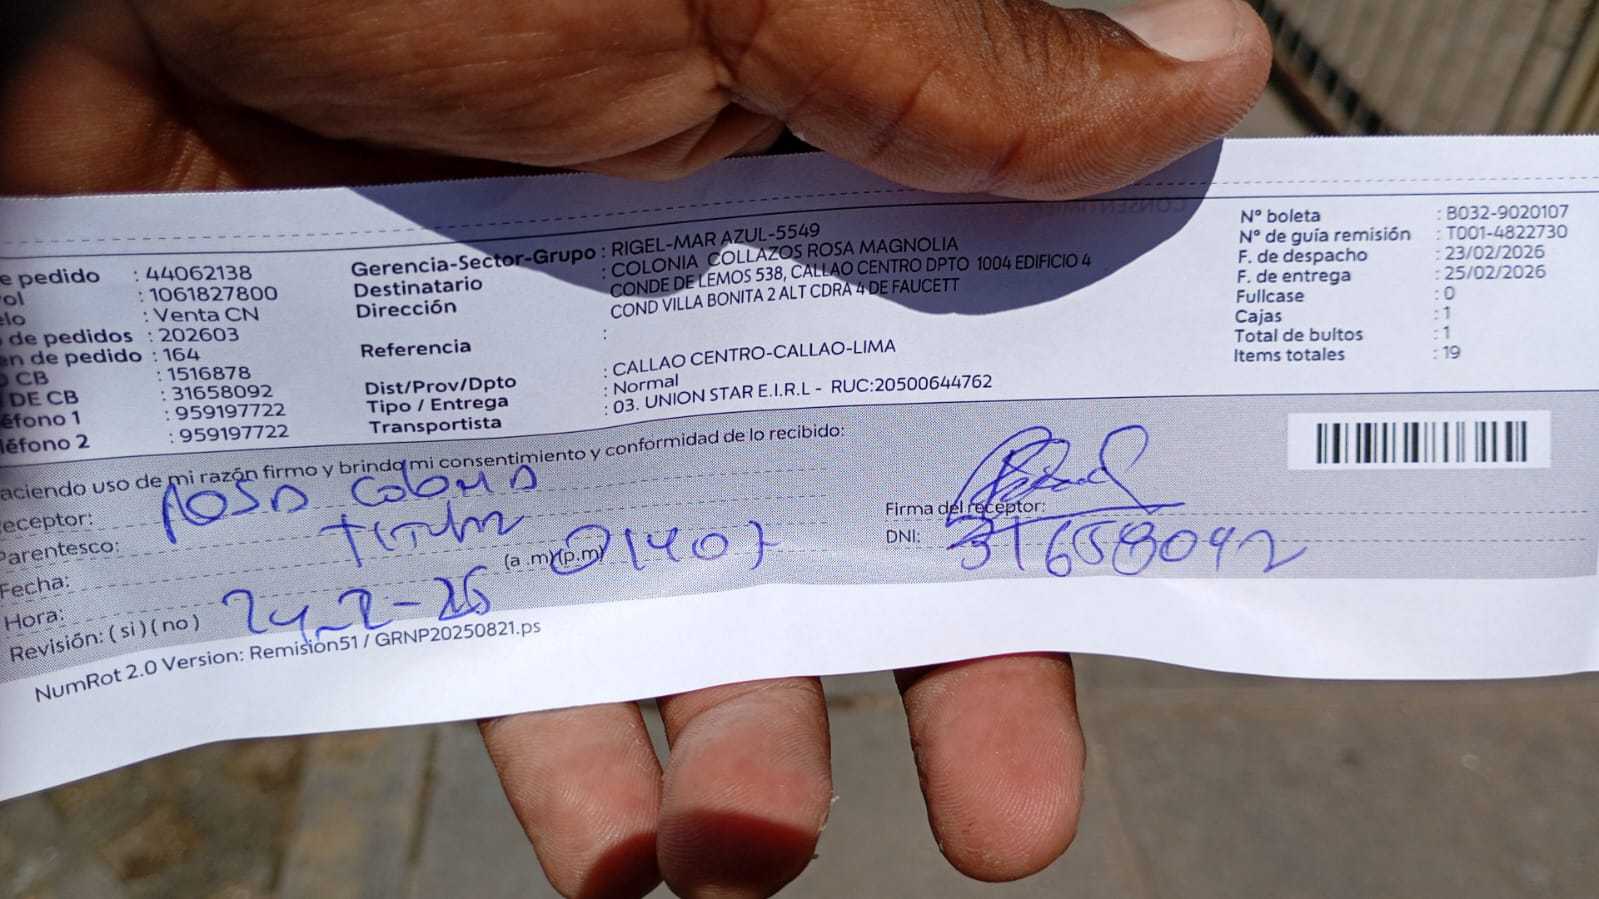 e pedido : 44062138
ol : 1061827800
elo : Venta CN
de pedidos : 202603
en de pedido : 164
CB : 1516878
DE CB : 31658092
éfono 1 : 959197722
léfono 2 : 959197722
Gerencia-Sector-Grupo : RIGEL-MAR AZUL-5549
Destinatario : COLONIA COLLAZOS ROSA MAGNOLIA
Dirección : CONDE DE LEMOS 538, CALLAO CENTRO DPTO 1004 EDIFICIO 4
COND VILLA BONITA 2 ALT CDRA 4 DE FAUCETT
Referencia :
Dist/Prov/Dpto : CALLAO CENTRO-CALLAO-LIMA
Tipo / Entrega : Normal
Transportista : 03. UNION STAR E.I.R.L - RUC:20500644762
Nº boleta : B032-9020107
Nº de guía remisión : T001-4822730
F. de despacho : 23/02/2026
F. de entrega : 25/02/2026
Fullcase : 0
Cajas : 1
Total de bultos : 1
Items totales : 19
aciendo uso de mi razón firmo y brindo mi consentimiento y conformidad de lo recibido:
eceptor: Rosa Colonia
Parentesco: Titular
Fecha:
Hora: (a .m)(p.m)
Revisión: ( si ) ( no ) 24-2-26
Firma del receptor:
DNI: 31658092
NumRot 2.0 Version: Remision51 / GRNP20250821.ps